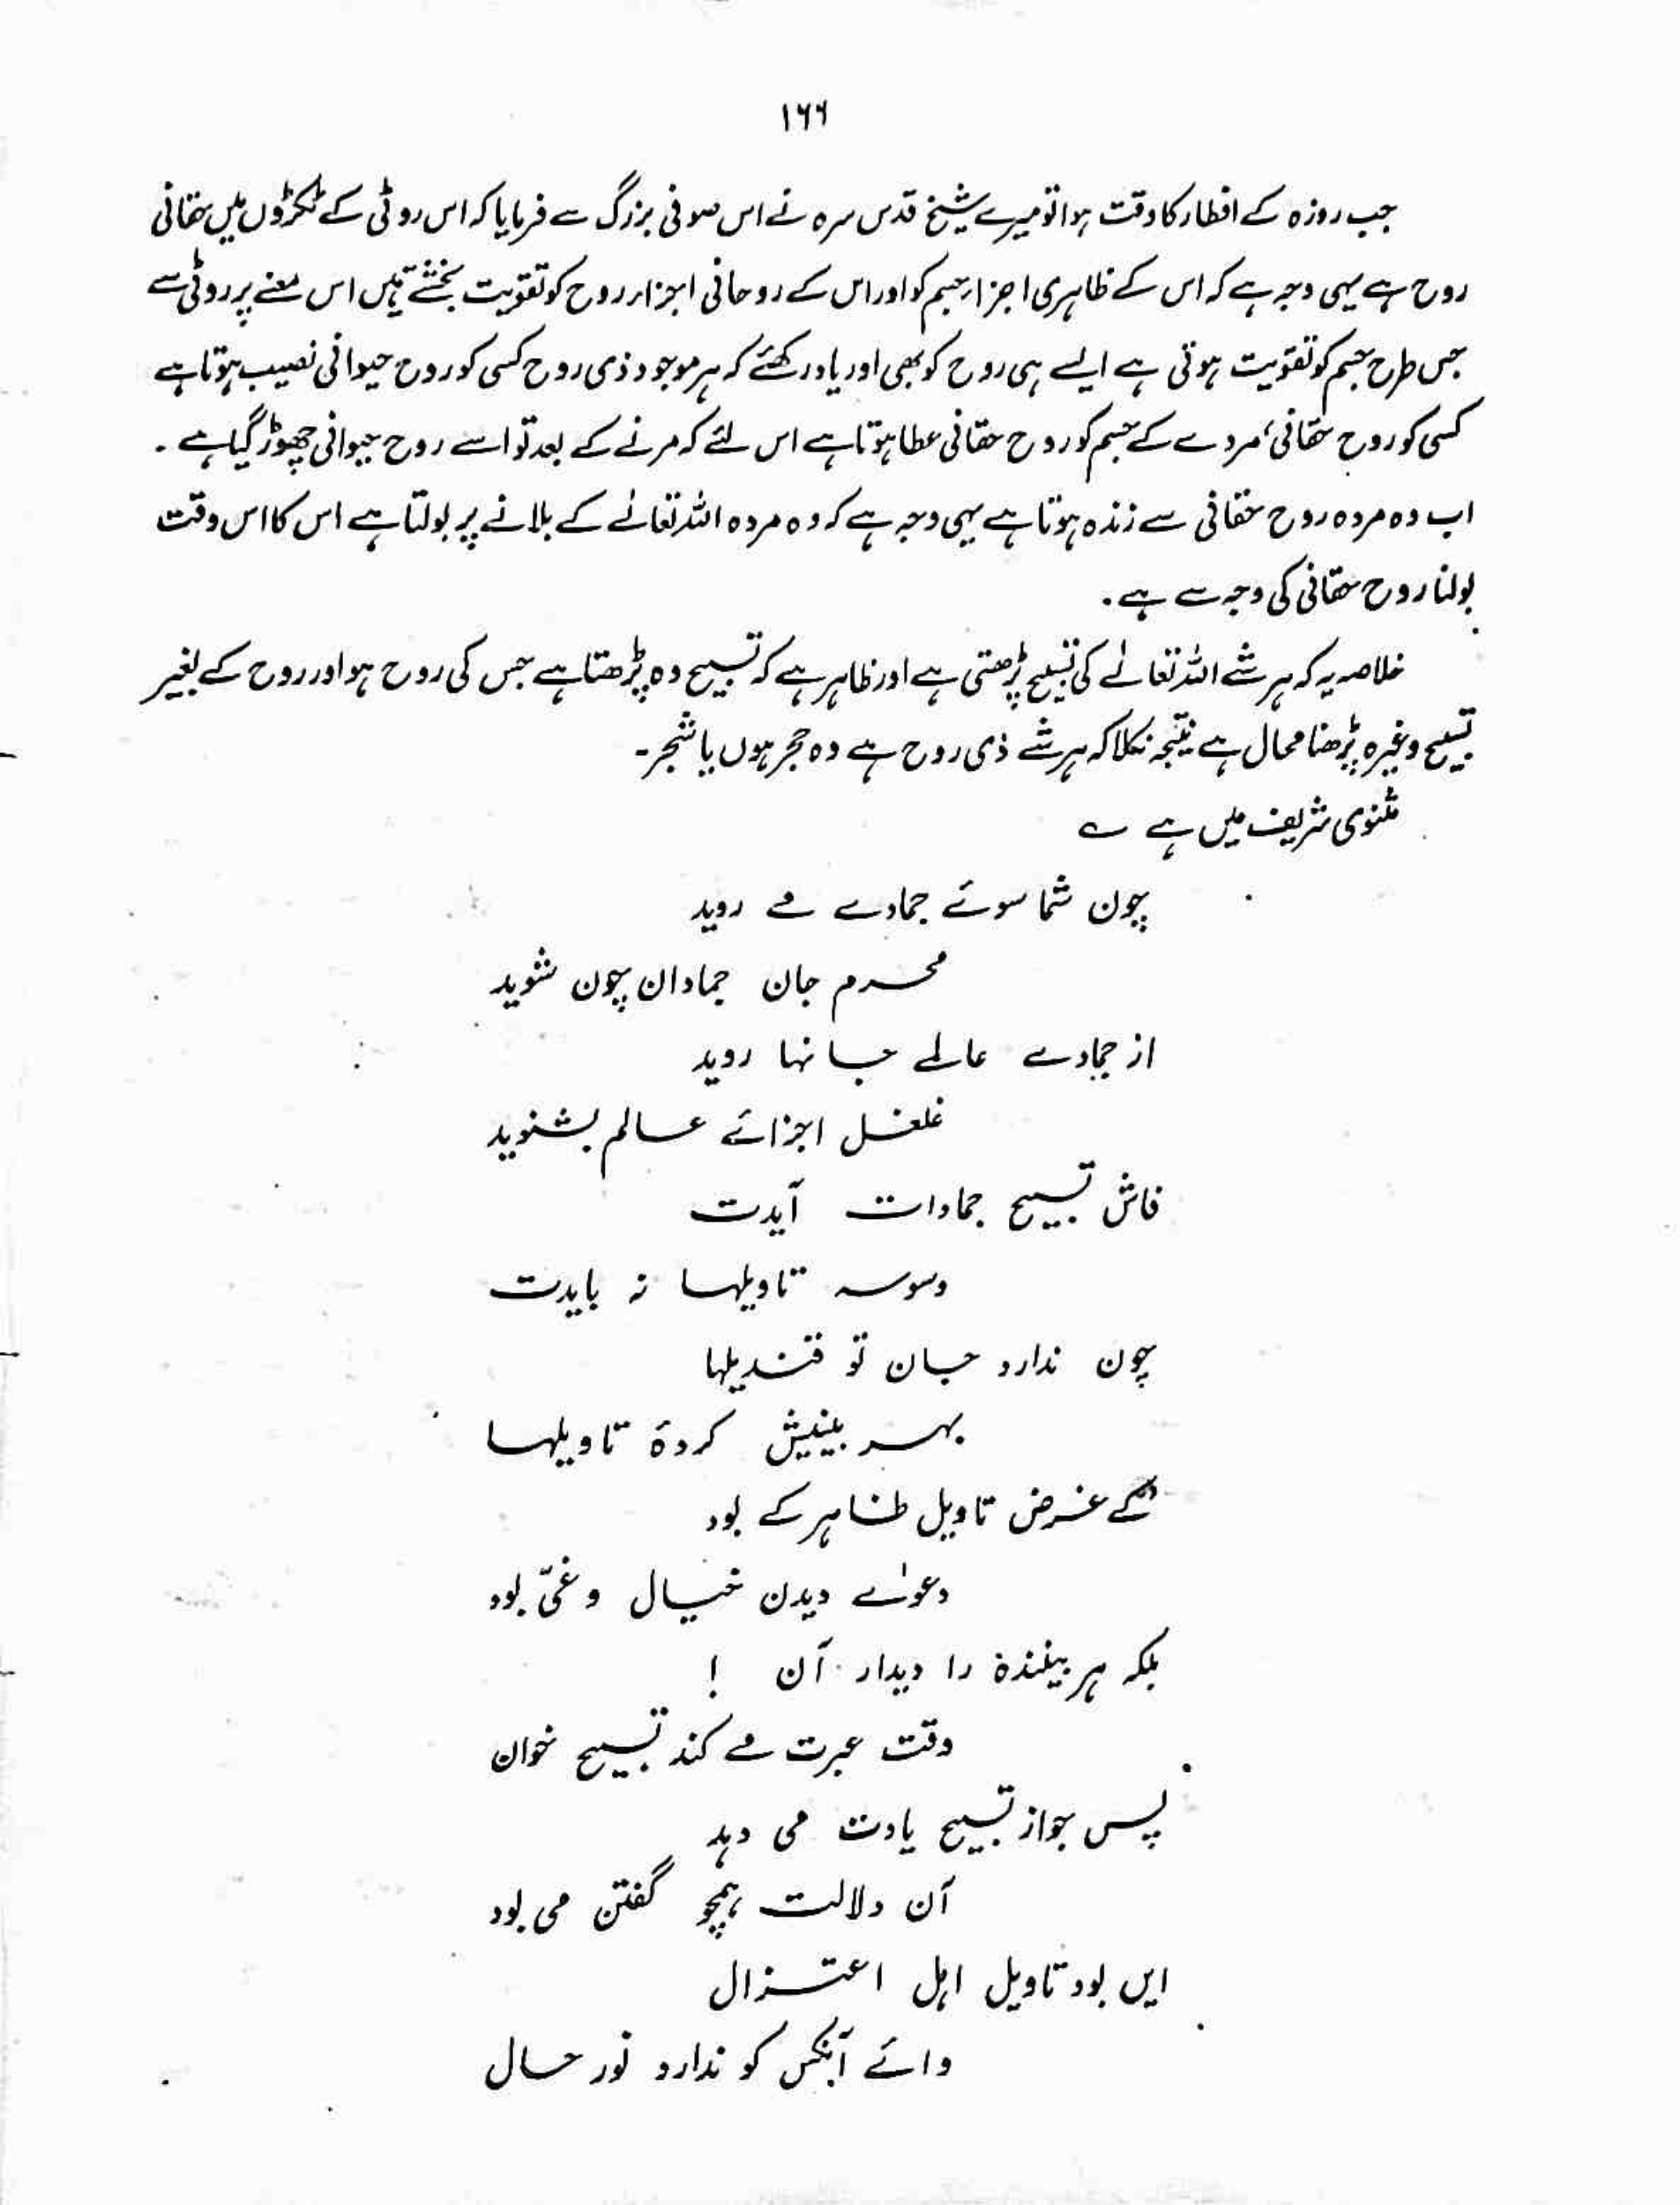 ۱۶۶
جب روزہ کے افطار کا وقت ہوا تو میرے شیخ قدس سرہ نے اس صوفی بزرگ سے فرمایا کہ اس روٹی کے ٹکڑوں میں حقانی
روح ہے یہی وجہ ہے کہ اس کے ظاہری اجزاء جسم کو اور اس کے روحانی اجزاء روح کو تقویت بخشتے ہیں اس معنے پر روٹی سے
جس طرح جسم کو تقویت ہوتی ہے ایسے ہی روح کو بھی اور یاد رکھئے کہ ہر موجود ذی روح کسی کو روح حیوانی نصیب ہوتا ہے
کسی کو روح حقانی، مردے کے جسم کو روح حقانی عطا ہوتا ہے اس لئے کہ مرنے کے بعد تو اسے روح حیوانی چھوڑ گیا ہے ۔
اب وہ مردہ روح حقانی سے زندہ ہوتا ہے یہی وجہ ہے کہ وہ مردہ اللہ تعالےٰ کے بلانے پر بولتا ہے اس کا اس وقت
بولنا روح حقانی کی وجہ سے ہے ۔
خلاصہ یہ کہ ہر شے اللہ تعالےٰ کی تسبیح پڑھتی ہے اور ظاہر ہے کہ تسبیح وہ پڑھتا ہے جس کی روح ہو اور روح کے بغیر
تسبیح وغیرہ پڑھنا محال ہے نتیجہ نکلا کہ ہر شے ذی روح ہے وہ حجر ہوں یا شجر ۔
مثنوی شریف میں ہے ؎
چون شما سوئے جمادے مے روید
محرم جان جمادان چون شوید
از جمادے عالمے جانہا روید
غلغل اجزائے عالم بشنوید
فاش تسبیح جمادات آیدت
وسوسہ تاویلہا نہ بایدت
چون ندارد جان تو قندیلہا
بہر بینش کردۂ تاویلہا
کے غرض تاویل ظاہر کے بود
دعوٰے دیدن خیال و غیّ بود
بلکہ ہر بینندۂ را دیدار آن !
وقت عبرت مے کند تسبیح خوان
پس جواز تسبیح یادت می دہد
آن دلالت ہمچو گفتن می بود
ایں بود تاویل اہل اعتزال
وائے آنکس کو ندارد نور حال